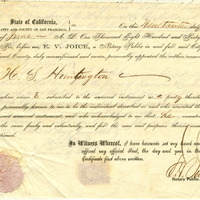 State of California,
CITY AND COUNTY OF SAN FRANCISCO.
On this Nineteenth day
of June A. D. One Thousand Eight Hundred and
before me, E. V. JOICE, a Notary Public in and for said City
and County, duly commissioned and sworn, personally appeared the within named
H. E. Huntington
whose name is subscribed to the annexed instrument as a party thereto,
personally known to me to be the individual described in and who executed the
annexed instrument, and acknowledged to me that he executed
the same freely and voluntarily, and for the uses and purposes therein
mentioned.
In Witness Whereof, I have hereunto set my hand and
affixed my official Seal, the day and year in this
Certificate first above written.
Notary Public